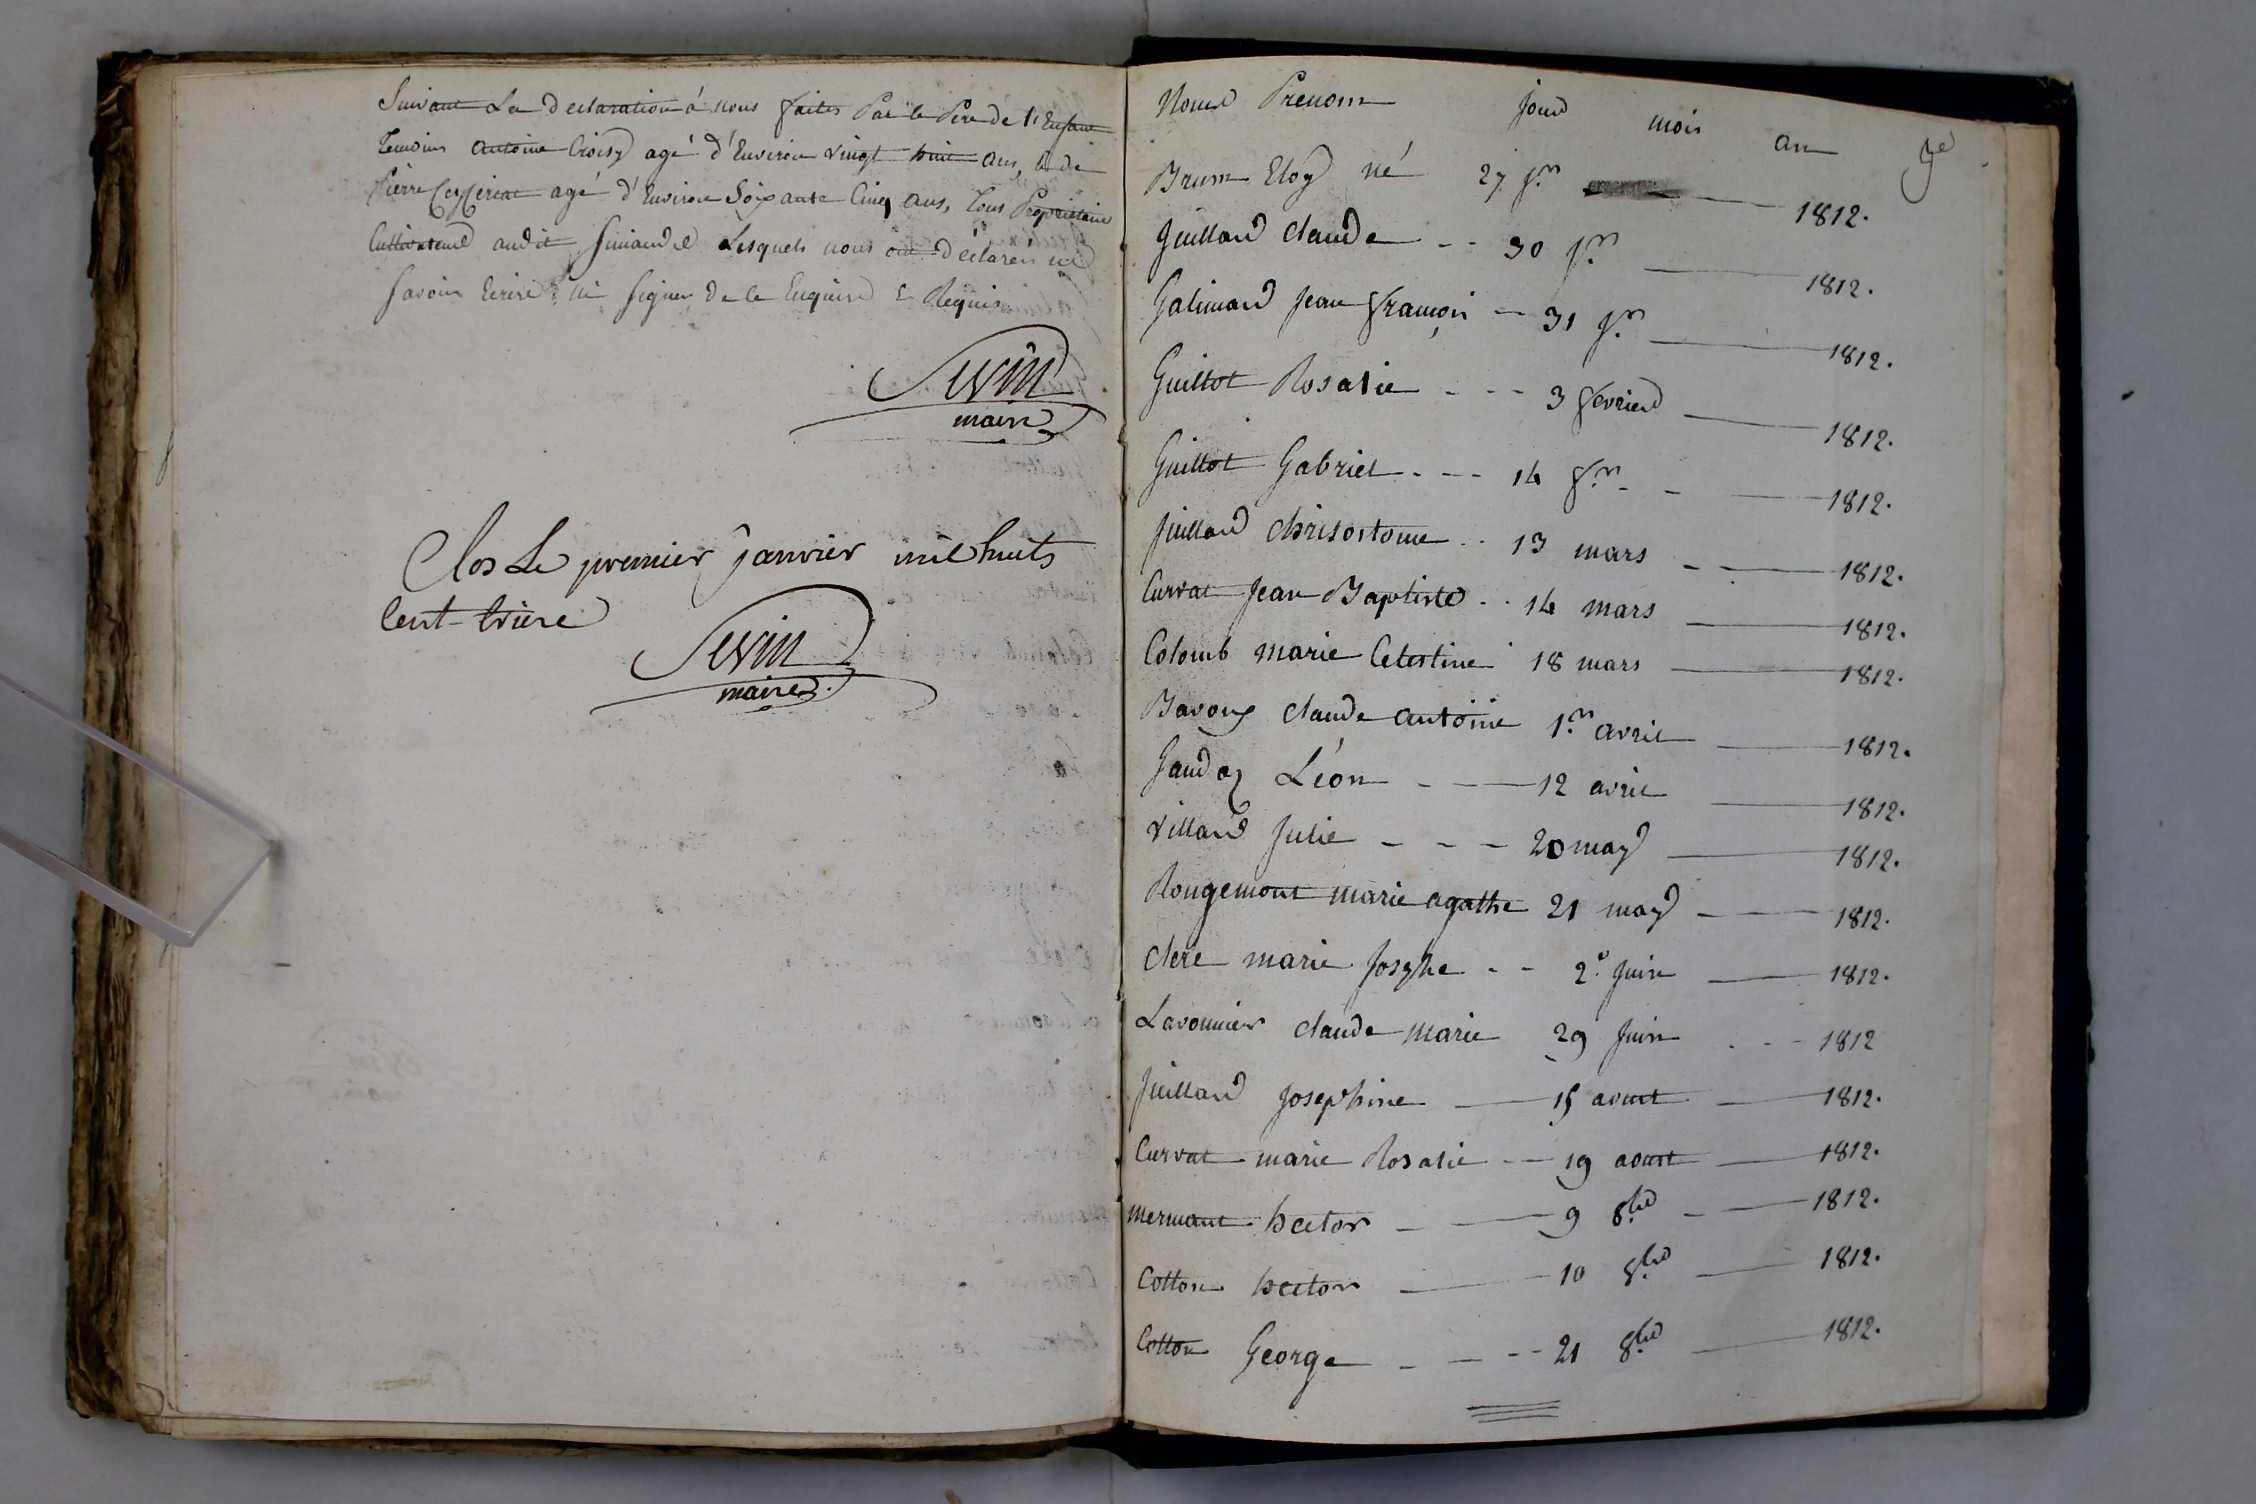 Suivant La déclaration à nous faites Par le Pere de l'Enfant
Temoins antoine Croisy agé d'Environ vingt huit ans, & de
Pierre agé d'Environ Soixante Cinq ans, Tous Propriétaire
Cultivateur audit Simandre Lesquels nous ont déclarés ne
savoir Ecrire ni signer de le Enquerre & Requis
Sevin
maire
Clos Le premier janvier mil huits
Cent treize
Sevin
maire
Noms Prenom jour mois an
Brum Eloy né 27 jer 1812.
Juillard claude 30 jer 1812.
Galimard jean françois 31 jer 1812.
Guillot Rosalie 3 fevrier 1812.
Guillot Gabriel 14 fer 1812.
Juillard chrisostome 13 mars 1812.
Curvat jean Baptiste 14 mars 1812.
Colomb marie Celestine 18 mars 1812.
Bavoux claude antoine 1er avril 1812.
Gauday Léon 12 avril 1812.
Villard Julie 20 may 1812.
Rougemont marie agathe 21 may 1812.
clere marie Josphe 2e juin 1812.
Lavonnier claude marie 29 juin 1812
Juillard josephine 15 avout 1812.
Curvat marie Rosalie 19 aoust 1812.
mermant hector 9 8bre 1812.
Cotton hector 10 8bre 1812.
Cotton George 21 8bre 1812.